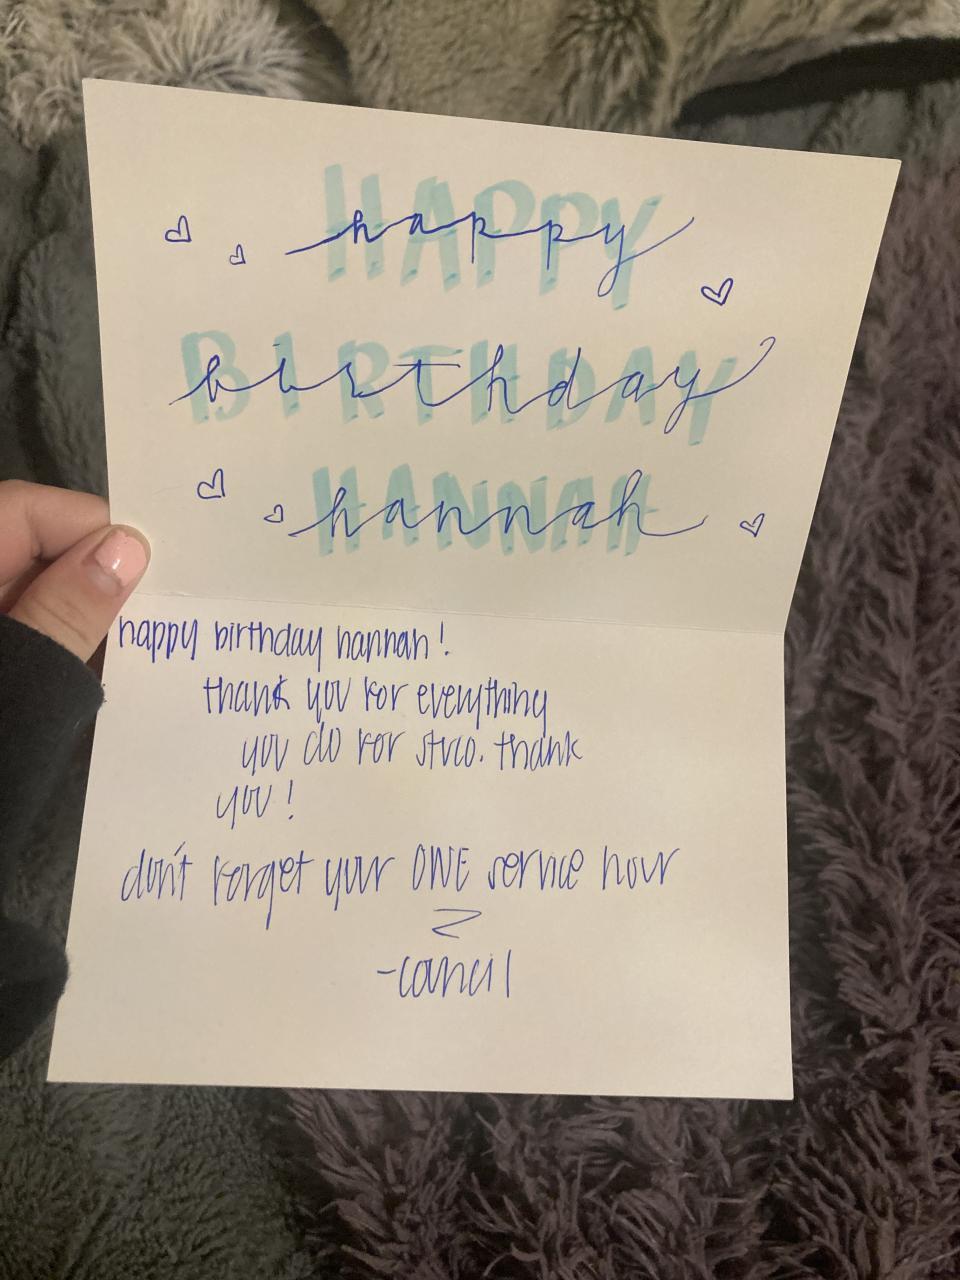 HAPPY
happy
BIRTHDAY
birthday
HANNAH
hannah
happy birthday hannah!
thank you for everything
you do for stuco. thank
you!
don't forget your ONE service hour
-council